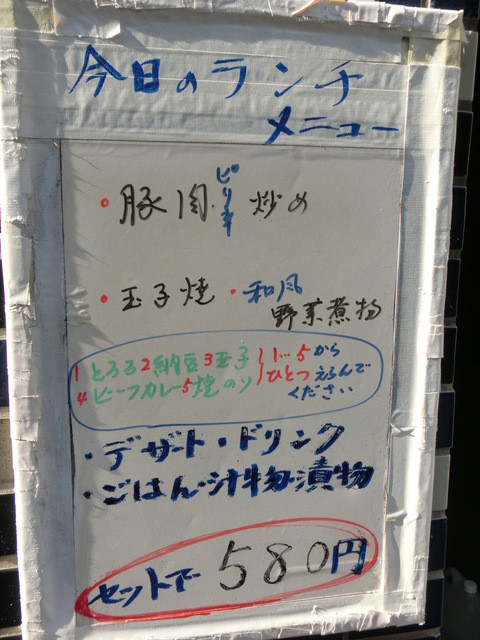 今日のランチ
メニュー
・豚肉ピリ辛炒め
・玉子焼・和風
野菜煮物
1とろろ2納豆3玉子
4ビーフカレー5焼のり
1…5から
ひとつえらんで
ください
・デザート・ドリンク
・ごはん・汁物・漬物
セットで580円